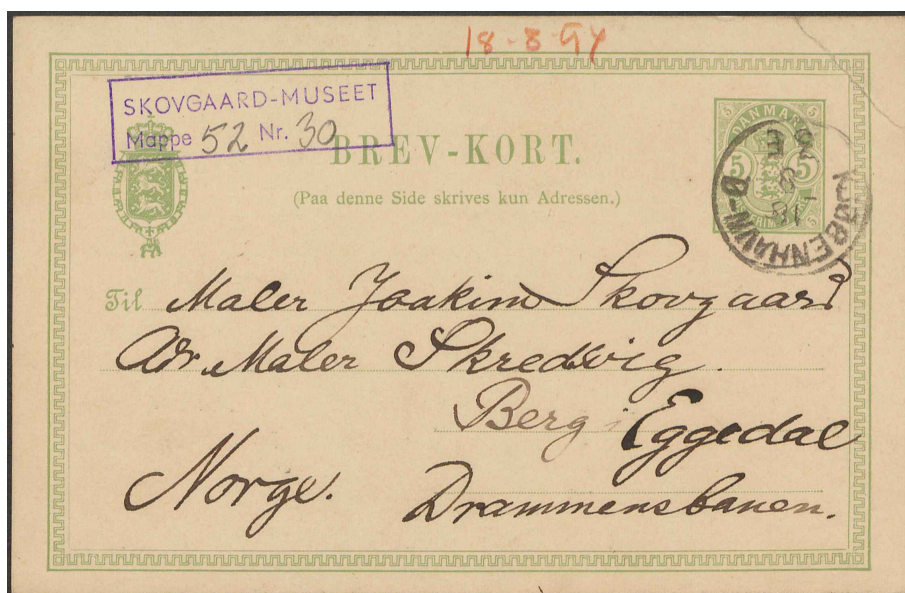 18-8-94
SKOVGAARD-MUSEET
Mappe 52 Nr. 30
BREV-KORT.
(Paa denne Side skrives kun Adressen.)
DANMARK
5 5
KJØBENHAVN-Ø
18
8
3 E
Til Maler Joakim Skovgaard
Adr. Maler Skredsvig.
Berg i Eggedal
Norge. Drammensbanen.